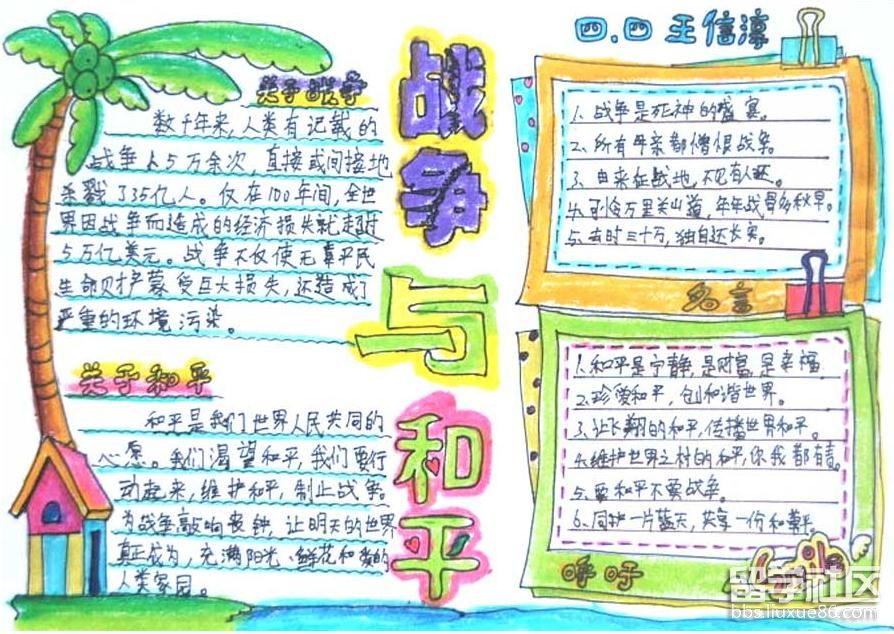 战争与和平
四.四 王信淳
关于战争
数千年来,人类有记载的
战争上5万余次,直接或间接地
杀戮了35亿人。仅在100年间,全世
界因战争而造成的经济损失就超过
5万亿美元。战争不仅使无辜平民
生命财产蒙受巨大损失,还造成了
严重的环境污染。
关于和平
和平是我们世界人民共同的
心愿。我们渴望和平,我们要行
动起来,维护和平,制止战争。
为战争敲响丧钟,让明天的世界
真正成为,充满阳光、鲜花和爱的
人类家园。
1. 战争是死神的盛宴。
2. 所有母亲都憎恨战争。
3. 由来征战地,不见有人还。
4. 可怜万里关山道,年年战骨多秋草。
5. 去时三十万,独自还长安。
名言
1. 和平是宁静,是财富,是幸福
2. 珍爱和平,创和谐世界。
3. 让飞翔的和平,传播世界和平。
4. 维护世界之村的和平,你我都有责。
5. 要和平不要战争。
6. 同护一片蓝天,共享一份和平。
呼吁
留学社区
bbs.liuxue86.com